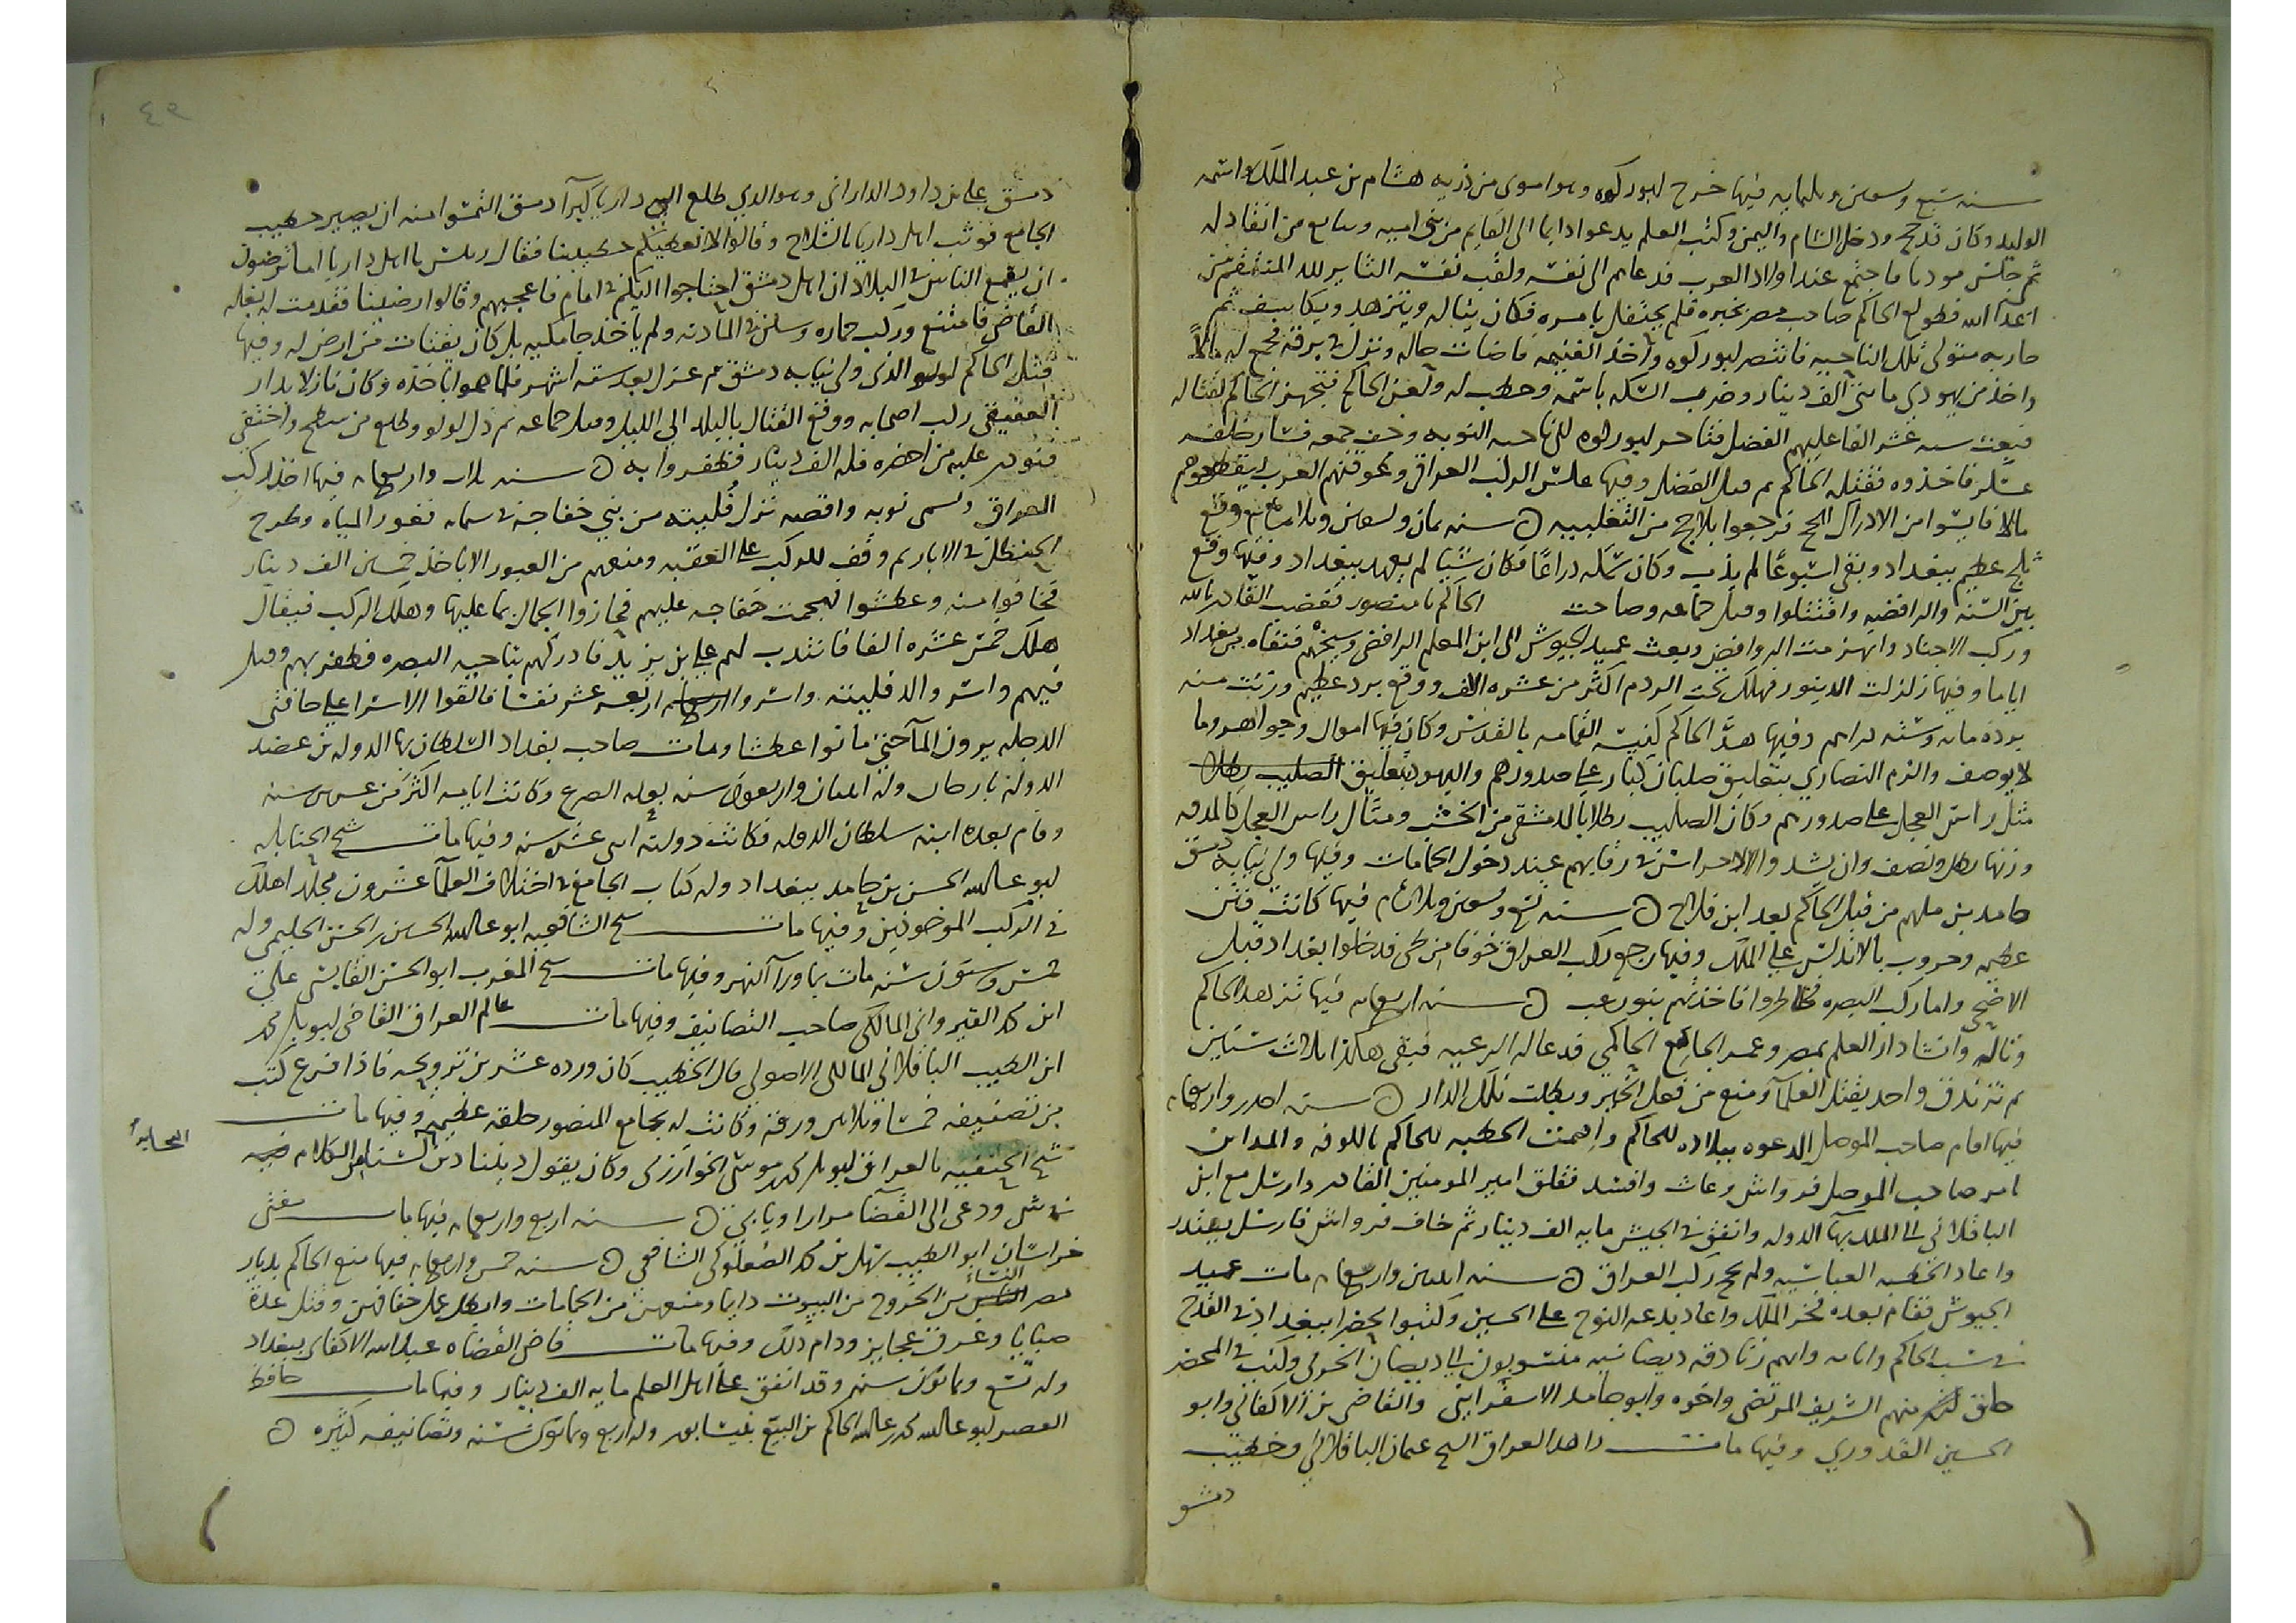 سنه سبع وتسعين وثلثمايه فيها خرج ابو ركوه وهو اموي من ذريه هشام بن عبد الملك واسمه
الوليد وكان قد حج ودخل الشام واليمن وكتب العلم يدعوا دايما الى القايم من بني اميه ويبايع من انقاد له
ثم جلس مودبا فاجتمع عنده اولاد العرب فدعاهم الى نفسه ولقب نفسه الثاير لله المنتقم من
اعدا الله فطولع الحاكم صاحب مصر بخبره فلم يحتفل بامره فكان يتاله ويتزهد ويكاشف ثم
حاربه متولي تلك الناحيه فانتصر ابو ركوه واخذ الغنيمه فاضات حاله ونزل في برقه فجمع له مالا
واخذ من يهودي مايتي الف دينار وضرب السكه باسمه وخطب له ولعن الحاكم فتجهز الحاكم لقتاله
فبعث سته عشر الفا عليهم الفضل ابو ركوه الى ناحيه النوبه فسار خلفه
عسكر فاخذوه فقتله الحاكم ثم قتل الفضل وفيها الركب العراقي وعوقتهم العرب
مالا فايسوا من ادراك الحج فرجعوا بلا حج من الثعلبيه ۞ سنه ثمان وتسعين وثلثمايه وقع
ثلج عظيم ببغداد وبقي اسبوعا لم يذب وكان سمكه ذراعا فكان شيا لم يعهد ببغداد وفيها وقع
بين السنه والرافضه واقتتلوا وقتل جماعه وصاحت الحاكم يا منصور فغضب القادر بالله
وركب الاجناد وانهزمت الروافض وبعث عميد الجيوش الى ابن المعلم الرافضي فنفاه من بغداد
اياما وفيها زلزلت الدينور فهلك تحت الردم اكثر من عشره الاف ووقع برد عظيم وزنت منه
برده مايه وسته دراهم وفيها هد الحاكم كنيسه القمامه بالقدس وكان فيها اموال وجواهر وما
لا يوصف والزم النصارى بتعليق صلبان كبار على صدورهم واليهود بتعليق
مثل راس العجل على صدورهم وكان الصليب رطلا بالدمشقي من الخشب ومثال راس العجل كالمدقه
وزنها رطل ونصف وان يشدوا الاجراس في رقابهم عند دخول الحمامات وفيها ولي نيابه دمشق
حامد بن ملهم من قبل الحاكم بعد ابن فلاح ۞ سنه تسع وتسعين وثلثمايه فيها كانت فتن
عظيمه وحروب بالاندلس على الملك وفيها رجع ركب العراق خوفا من طي فدخلوا بغداد قبل
الاضحى واما ركب البصره فخاطروا فاخذتهم بنو زعب ۞ سنه اربعمايه فيها تزهد الحاكم
وتاله وانشا دار العلم بمصر وعمر الجامع الحاكمي فدعا له الرعيه فبقي هكذا ثلاث سنين
ثم تزندق واخذ يقتل العلما ومنع من فعل الخير وبطلت تلك الدار ۞ سنه احدى واربعمايه
فيها اقام صاحب الموصل الدعوه ببلاده للحاكم واقيمت الخطبه للحاكم بالكوفه والمداين
امر صاحب الموصل قرواش وعاث وافسد فقلق امير المومنين القادر وارسل مع ابن
الباقلاني الى الملك بها الدوله وانفق في الجيش مايه الف دينار ثم خاف قرواش فارسل يعتذر
واعاد الخطبه العباسيه ولم يحج ركب العراق ۞ سنه اثنتين واربعمايه مات عميد
الجيوش فقام بعده فخر الملك واعاد بدعه النوح على الحسين وكتبوا محضرا ببغداد في القدح
في نسب الحاكم وابايه وانهم زنادقه ديصانيه منسوبون الى ديصان الخرمي وكتب في المحضر
خلق منهم الشريف المرتضى واخوه وابو حامد الاسفرايني والقاضي بن الاكفاني وابو
الحسين القدوري وفيها مات زاهد العراق الشيخ عثمان الباقلاني وخطيب
دمشق
دمشق علي بن داود الداراني وهو الذي طلع الى داريا كبرا دمشق التمسوا منه ان يصير خطيب
الجامع فوثب اهل داريا بالسلاح وقالوا لا نعطيكم خطيبنا فقال ريس يا اهل داريا اما ترضون
ان يسمع الناس في البلاد ان اهل دمشق احتاجوا اليكم في امام فاعجبهم وقالوا رضينا فقدمت له بغله
القاضي فامتنع وركب حماره وسكن في الماذنه ولم ياخذ جامكيه بل كان يقتات من ارض له وفيها
قتل الحاكم لولو الذي ولي نيابه دمشق ثم عزل بعد سته اشهر وكان نازلا بدار
العقيقي ركب اصحابه ووقع القتال بالبلد الى الليل وقتل جماعه ثم نزل لولو وطلع من سطح واختفى
فنودي عليه من احضره فله الف دينار فظفروا به ۞ سنه ثلاث واربعمايه فيها اخذ الركب
العراقي وتسمى نوبه واقصه نزل فليته من بني خفاجه فغور المياه وطرح
الحنظل في الابار ثم وقف للركب على العقبه ومنعهم من العبور الا باخذ خمسين الف دينار
فخافوا منه وعطشوا فهجمت خفاجه عليهم فحازوا الجمال بما عليها وهلك الركب فيقال
هلك خمس عشره الفا فانتدب لهم علي بن يزيد فادركهم بناحيه البصره فظفر بهم وقتل
فيهم واسر والد فليته واسروا اربعه عشر نفسا فالقوا الاسرا على حافتي
الدجله يرون الما حتى ماتوا عطشا ومات صاحب بغداد السلطان بها الدوله بن عضد
الدوله بارجان وله اثنتان واربعون سنه بعله الصرع وكانت ايامه اكثر من عشرين سنه
وقام بعده ابنه سلطان الدوله فكانت دولته اثنتي عشره سنه وفيها مات شيخ الحنابله
ابو عبد الله الحسن بن حامد ببغداد وله كتاب الجامع في اختلاف العلما عشرون مجلدا هلك
في الركب الماخوذين وفيها مات شيخ الشافعيه ابو عبد الله الحسين بن الحسن الحليمي وله
خمس وستون سنه مات بما ورا النهر وفيها مات شيخ المغرب ابو الحسن القابسي علي
ابن محمد القيرواني المالكي صاحب التصانيف وفيها مات عالم العراق القاضي ابو بكر محمد
ابن الطيب الباقلاني المالكي الاصولي قال الخطيب كان ورده عشرين ترويحه فاذا فرغ كتب
من تصنيفه خمسا وثلاثين ورقه وكانت له بجامع المنصور حلقه عظيمه وفيها مات
شيخ الحنفيه بالعراق ابو بكر محمد بن موسى الخوارزمي وكان يقول ديننا دين لسنا من الكلام
في شي ودعي الى القضا مرارا ويابى ۞ سنه اربع واربعمايه فيها مات مفتي
خراسان ابو الطيب سهل بن محمد الصعلوكي الشافعي ۞ سنه خمس واربعمايه فيها منع الحاكم بديار
مصر النساء من الخروج من البيوت دايما ومنعهن من الحمامات وابطل عمل خفافهن وقتل عده
صبايا وغرق عجايز ودام ذلك وفيها مات قاضي القضاه عبد الله الاكفاني ببغداد
وله تسع وثمانون سنه وقد انفق على اهل العلم مايه الف دينار وفيها مات حافظ
العصر ابو عبد الله محمد بن عبد الله الحاكم بن البيع بنيسابور وله اربع وثمانون سنه وتصانيفه كثيره ۞